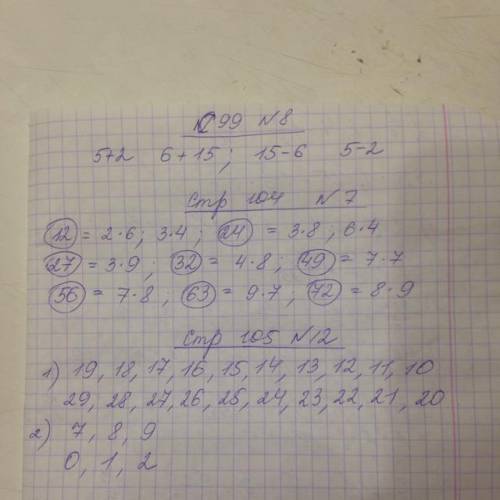 С 99 N 8
5+2 6+15; 15-6 5-2
Стр 104 N 7
12 = 2·6; 3·4; 24 = 3·8, 6·4
27 = 3·9; 32 = 4·8; 49 = 7·7
56 = 7·8, 63 = 9·7, 72 = 8·9
Стр 105 N 12
1) 19, 18, 17, 16, 15, 14, 13, 12, 11, 10
29, 28, 27, 26, 25, 24, 23, 22, 21, 20
2) 7, 8, 9
0, 1, 2